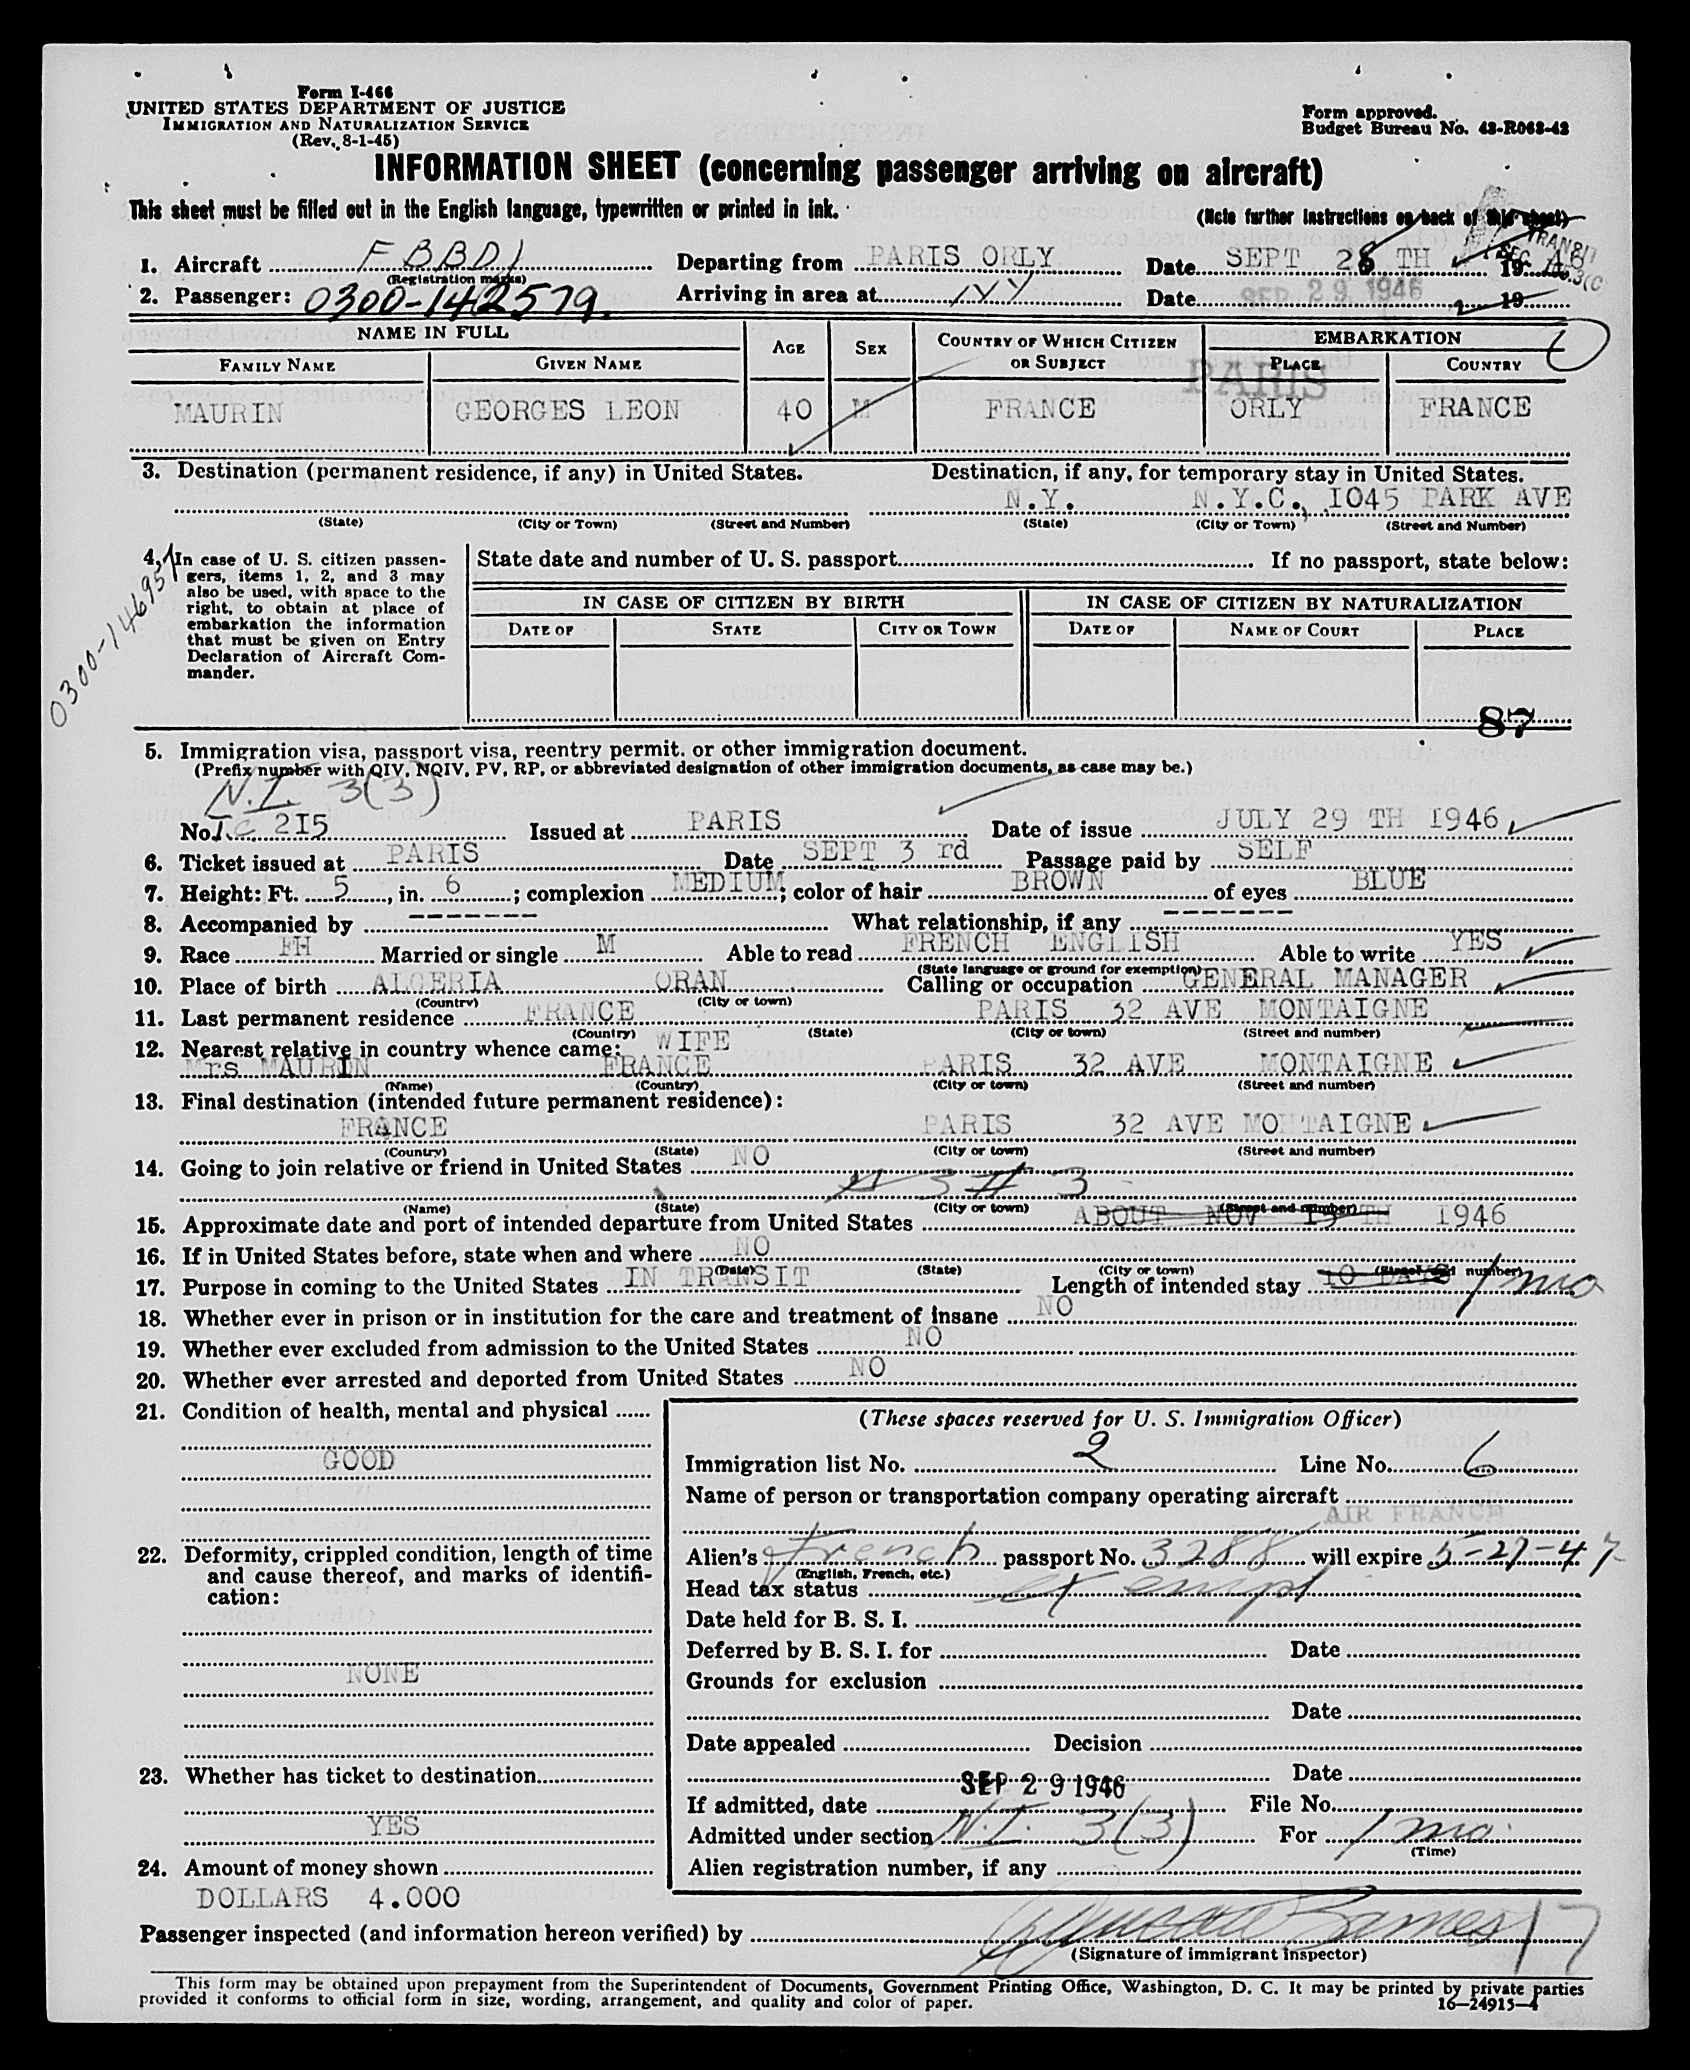 Form I-466
UNITED STATES DEPARTMENT OF JUSTICE
IMMIGRATION AND NATURALIZATION SERVICE
(Rev. 8-1-45)
Form approved.
Budget Bureau No. 43-R063-43
INFORMATION SHEET (concerning passenger arriving on aircraft)
This sheet must be filled out in the English language, typewritten or printed in ink.
(Note further instructions on back of this sheet)
TRANSIT
1. Aircraft F BBDI Departing from PARIS ORLY Date SEPT 28 TH 1946
(Registration marks)
2. Passenger: 0300-142579 Arriving in area at Date SEP 29 1946 19
NAME IN FULL AGE SEX COUNTRY OF WHICH CITIZEN OR SUBJECT EMBARKATION
FAMILY NAME GIVEN NAME PLACE COUNTRY
PARIS
MAURIN GEORGES LEON 40 M FRANCE ORLY FRANCE
3. Destination (permanent residence, if any) in United States. Destination, if any, for temporary stay in United States.
N.Y. N.Y.C., 1045 PARK AVE
(State) (City or Town) (Street and Number) (State) (City or Town) (Street and Number)
4. In case of U. S. citizen passengers, items 1, 2, and 3 may also be used, with space to the right, to obtain at place of embarkation the information that must be given on Entry Declaration of Aircraft Commander.
0300-146951
State date and number of U. S. passport If no passport, state below:
IN CASE OF CITIZEN BY BIRTH IN CASE OF CITIZEN BY NATURALIZATION
DATE OF STATE CITY OR TOWN DATE OF NAME OF COURT PLACE
87
5. Immigration visa, passport visa, reentry permit, or other immigration document.
(Prefix number with QIV, NQIV, PV, RP, or abbreviated designation of other immigration documents, as case may be.)
N.I. 3(3)
No. TC 215 Issued at PARIS Date of issue JULY 29 TH 1946
6. Ticket issued at PARIS Date SEPT 3 rd Passage paid by SELF
7. Height: Ft. 5, in. 6; complexion MEDIUM; color of hair BROWN of eyes BLUE
8. Accompanied by ------- What relationship, if any -------
9. Race FH Married or single M Able to read FRENCH ENGLISH Able to write YES
(State language or ground for exemption)
10. Place of birth ALGERIA ORAN Calling or occupation GENERAL MANAGER
(Country) (City or town)
11. Last permanent residence FRANCE PARIS 32 AVE MONTAIGNE
(Country) (State) (City or town) (Street and number)
12. Nearest relative in country whence came: WIFE
Mrs MAURIN FRANCE PARIS 32 AVE MONTAIGNE
(Name) (Country) (City or town) (Street and number)
13. Final destination (intended future permanent residence):
FRANCE PARIS 32 AVE MONTAIGNE
(Country) (State) (City or town) (Street and number)
14. Going to join relative or friend in United States NO
(Name) (State) (City or town) (Street and number)
15. Approximate date and port of intended departure from United States ABOUT NOV 15 TH 1946
16. If in United States before, state when and where NO
(Date) (State) (City or town) (Street and number)
17. Purpose in coming to the United States IN TRANSIT Length of intended stay 10 DAYS 1 mo
18. Whether ever in prison or in institution for the care and treatment of insane NO
19. Whether ever excluded from admission to the United States NO
20. Whether ever arrested and deported from United States NO
21. Condition of health, mental and physical
GOOD
22. Deformity, crippled condition, length of time and cause thereof, and marks of identification:
NONE
23. Whether has ticket to destination
YES
24. Amount of money shown
DOLLARS 4.000
(These spaces reserved for U. S. Immigration Officer)
Immigration list No. 2 Line No. 6
Name of person or transportation company operating aircraft
AIR FRANCE
Alien's French passport No. 3288 will expire 5-27-47
(English, French, etc.)
Head tax status exempt
Date held for B. S. I.
Deferred by B. S. I. for Date
Grounds for exclusion
Date
Date appealed Decision
Date
If admitted, date SEP 29 1946 File No.
Admitted under section N.I. 3(3) For 1 mo.
(Time)
Alien registration number, if any
Passenger inspected (and information hereon verified) by
(Signature of immigrant inspector)
17
This form may be obtained upon prepayment from the Superintendent of Documents, Government Printing Office, Washington, D. C. It may be printed by private parties
provided it conforms to official form in size, wording, arrangement, and quality and color of paper.
16—24915-4